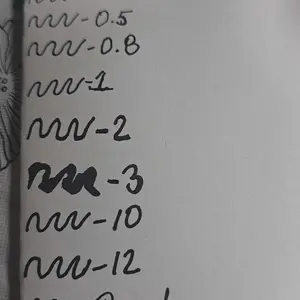 -0.5
-0.8
-1
-2
-3
-10
-12